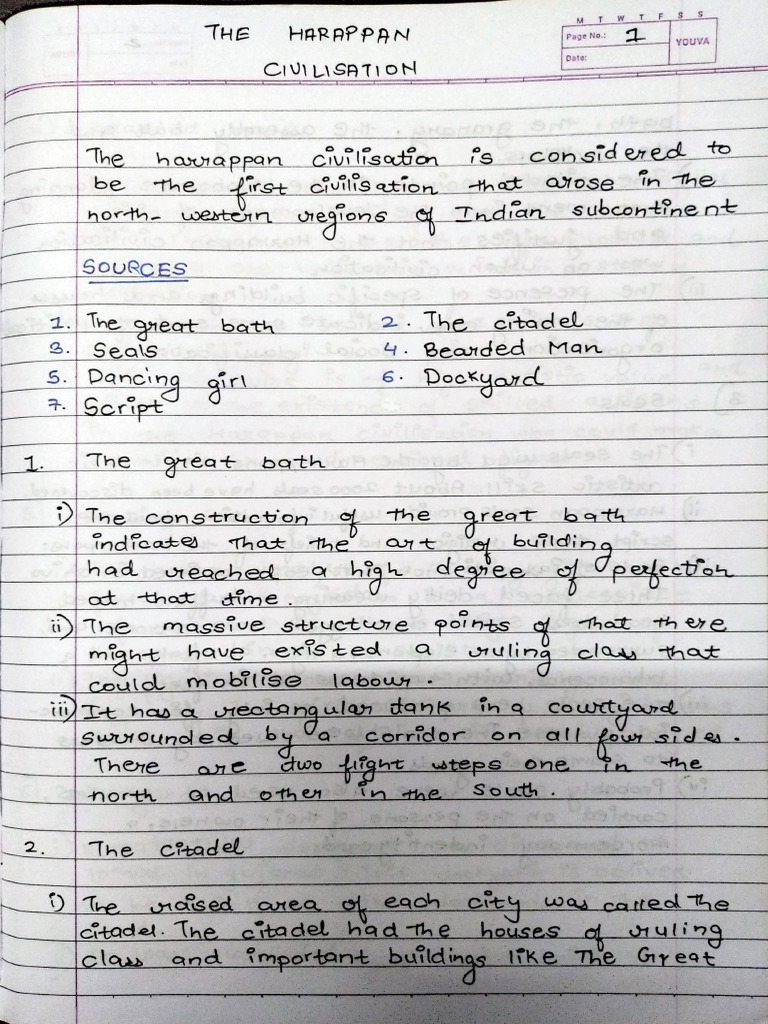 THE HARAPPAN
CIVILISATION
M T W T F S S
Page No.: 1
Date:
YOUVA
The harrappan civilisation is considered to
be the first civilisation that arose in the
north-western regions of Indian subcontinent
SOURCES
1. The great bath 2. The citadel
3. Seals 4. Bearded Man
5. Dancing girl 6. Dockyard
7. Script
1. The great bath
i) The construction of the great bath
indicates that the art of building
had reached a high degree of perfection
at that time.
ii) The massive structure points of that there
might have existed a ruling class that
could mobilise labour.
iii) It has a rectangular tank in a courtyard
surrounded by a corridor on all four sides.
There are two flight steps one in the
north and other in the south.
2. The citadel
i) The raised area of each city was called the
citadel. The citadel had the houses of ruling
class and important buildings like The Great